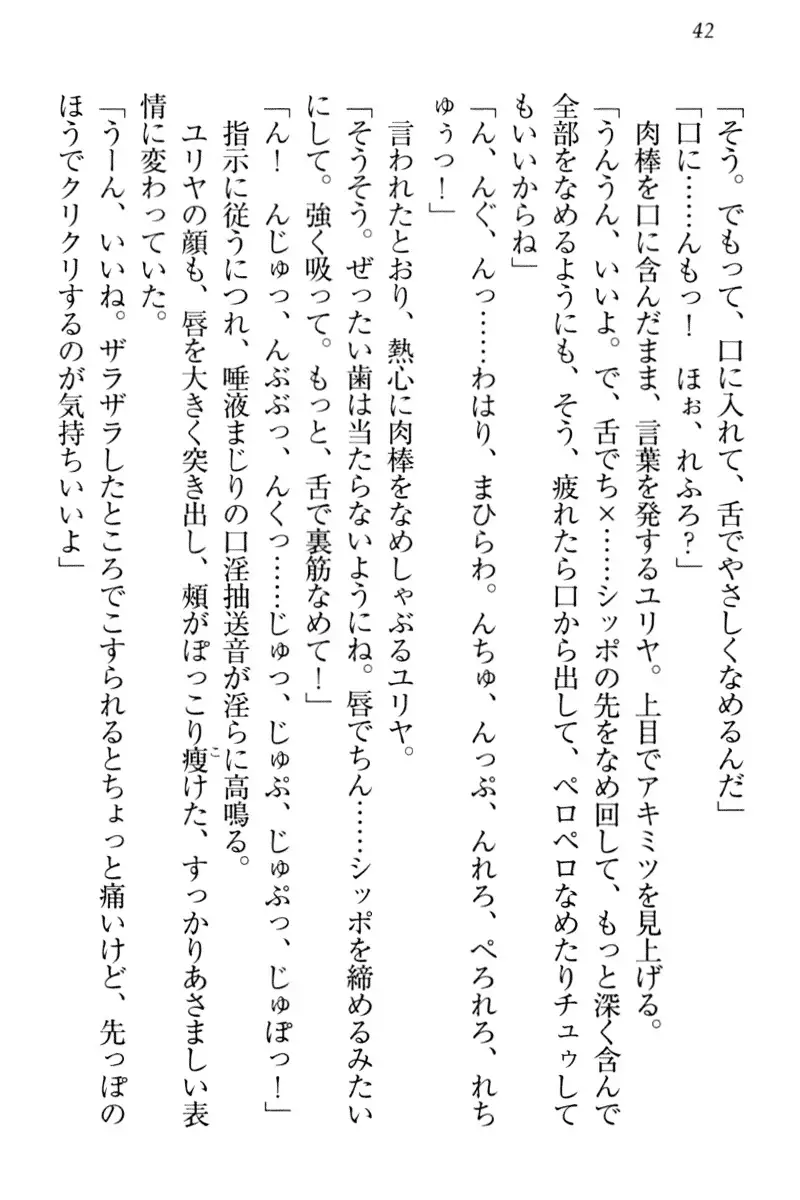 42
「そう。でもって、口に入れて、舌でやさしくなめるんだ」
「口に……んもっ！　ほぉ、れふろ？」
　肉棒を口に含んだまま、言葉を発するユリヤ。上目でアキミツを見上げる。
「うんうん、いいよ。で、舌でち×……シッポの先をなめ回して、もっと深く含んで
全部をなめるようにも、そう、疲れたら口から出して、ペロペロなめたりチュゥして
もいいからね」
「ん、んぐ、んっ……わはり、まひらわ。んちゅ、んっぷ、んれろ、ぺろれろ、れち
ゅぅっ！」
　言われたとおり、熱心に肉棒をなめしゃぶるユリヤ。
「そうそう。ぜったい歯は当たらないようにね。唇でちん……シッポを締めるみたい
にして。強く吸って。もっと、舌で裏筋なめて！」
「ん！　んじゅっ、んぶぶっ、んくっ……じゅっ、じゅぷ、じゅぷっ、じゅぽっ！」
　指示に従うにつれ、唾液まじりの口淫抽送音が淫らに高鳴る。
　ユリヤの顔も、唇を大きく突き出し、頬がぽっこり瘦こけた、すっかりあさましい表
情に変わっていた。
「うーん、いいね。ザラザラしたところでこすられるとちょっと痛いけど、先っぽの
ほうでクリクリするのが気持ちいいよ」